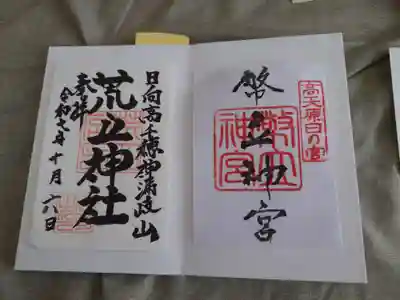 高天原日の宮
幣立神宮
幣立
神宮
日向高千穂神漏岐山
荒立神社
奉拝
令和七年十月六日